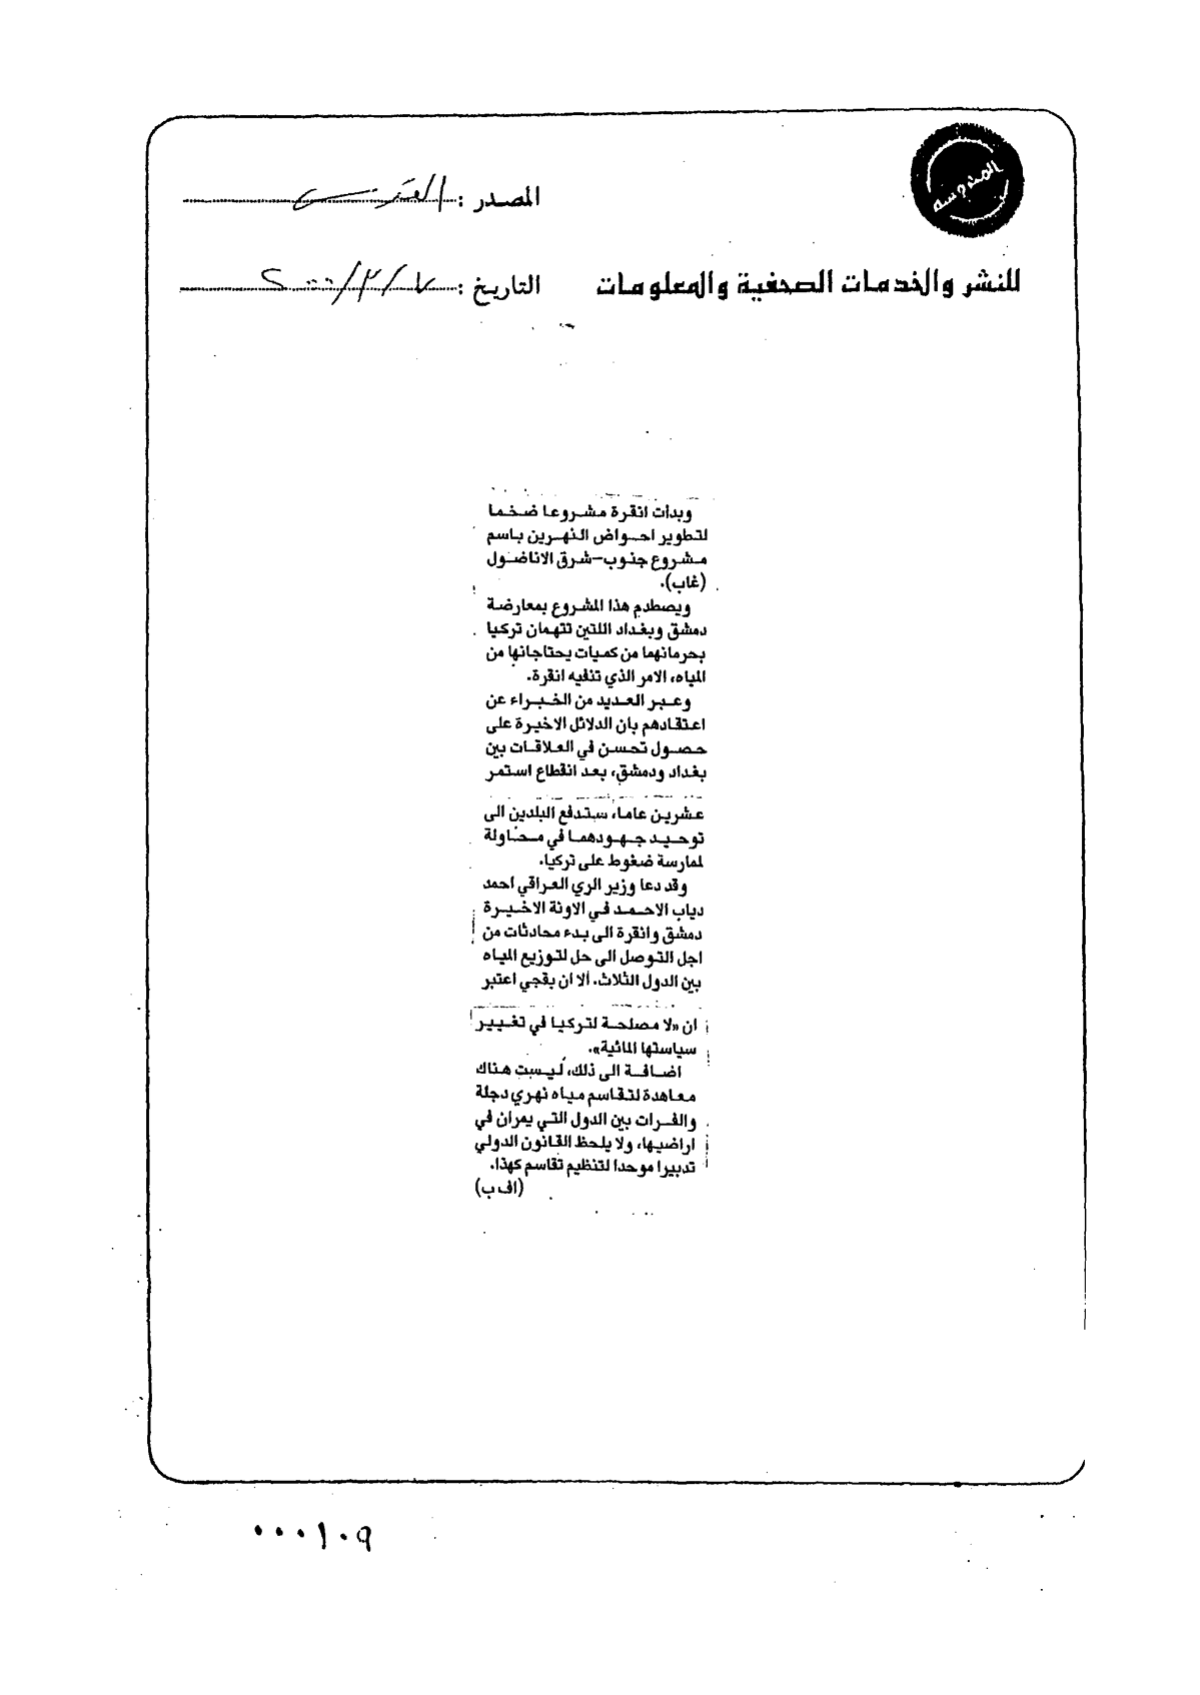 المحروسة
المصدر : القدس
للنشر والخدمات الصحفية والمعلومات
التاريخ : ٧/٣/٢٠٠٠
وبدأت انقرة مشروعا ضخما
لتطوير احواض النهرين باسم
مشروع جنوب-شرق الاناضول
(غاب).
ويصطدم هذا المشروع بمعارضة
دمشق وبغداد اللتين تتهمان تركيا
بحرمانهما من كميات يحتاجانها من
المياه، الامر الذي تنفيه انقرة.
وعبر العديد من الخبراء عن
اعتقادهم بان الدلائل الاخيرة على
حصول تحسن في العلاقات بين
بغداد ودمشق، بعد انقطاع استمر
عشرين عاما، ستدفع البلدين الى
توحيد جهودهما في محاولة
لممارسة ضغوط على تركيا.
وقد دعا وزير الري العراقي احمد
دياب الاحمد في الاونة الاخيرة
دمشق وانقرة الى بدء محادثات من
اجل التوصل الى حل لتوزيع المياه
بين الدول الثلاث. الا ان يقجي اعتبر
ان «لا مصلحة لتركيا في تغيير
سياستها المائية».
اضافة الى ذلك، ليست هناك
معاهدة لتقاسم مياه نهري دجلة
والفرات بين الدول التي يمران في
اراضيها، ولا يلحظ القانون الدولي
تدبيرا موحدا لتنظيم تقاسم كهذا.
(اف ب)
٠٠٠١٠٩